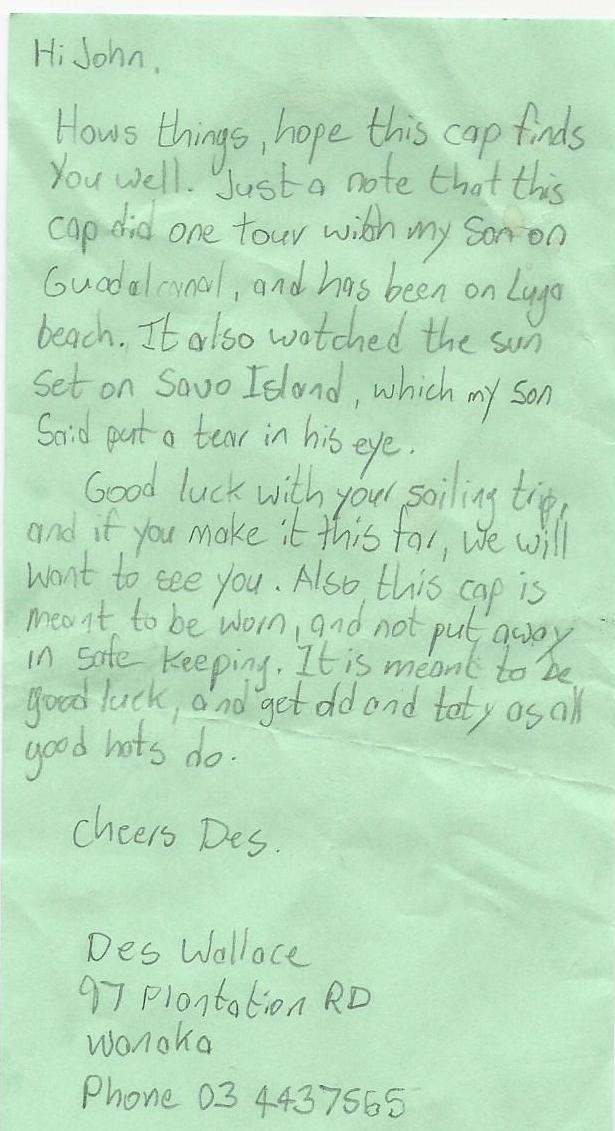 Hi John,
Hows things, hope this cap finds
You well. Just a note that this
cap did one tour with my Son on
Guadalcanal, and has been on Luga
beach. It also watched the sun
set on Savo Island, which my son
Said put a tear in his eye.
Good luck with your sailing trip,
and if you make it this far, we will
want to see you. Also, this cap is
meant to be worn, and not put away
in safe keeping. It is meant to be
good luck, and get old and taty as all
good hats do.
Cheers Des.
Des Wallace
97 Plantation RD
Wanaka
Phone 03 4437565